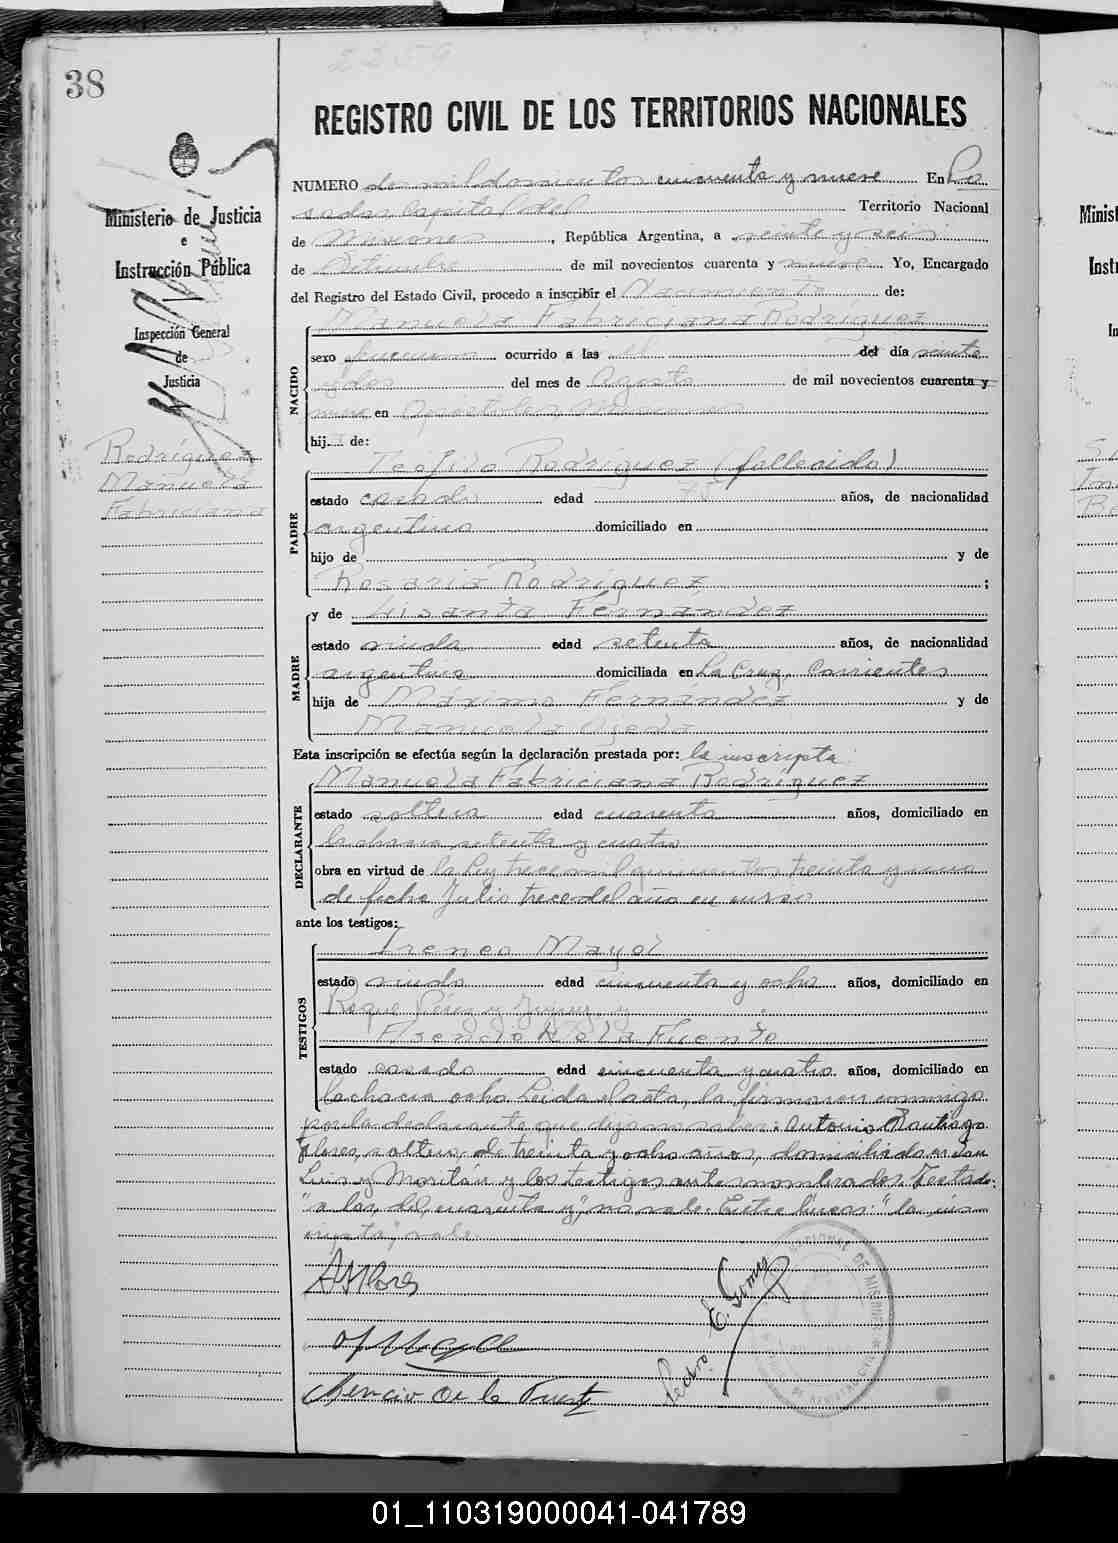 2259
38
REGISTRO CIVIL DE LOS TERRITORIOS NACIONALES
Ministerio de Justicia
e
Instrucción Pública
Inspección General
de
Justicia
Rodríguez
Manuela
Fabriciana
NUMERO dos mil doscientos cincuenta y nueve En Po
sadas Capital del Territorio Nacional
de Misiones, República Argentina, a veinte y seis
de Setiembre de mil novecientos cuarenta y nueve Yo, Encargado
del Registro del Estado Civil, procedo a inscribir el Nacimiento de:
NACIDO
Manuela Fabriciana Rodríguez
sexo femenino ocurrido a las el del día veinte
y dos del mes de Agosto de mil novecientos cuarenta y
nueve en Apóstoles, Misiones
hij.... de:
PADRE
Teófilo Rodríguez (fallecido)
estado casado edad 75 años, de nacionalidad
argentino domiciliado en
hijo de y de
Rosaria Rodríguez ;
MADRE
y de Lisanta Fernández
estado viuda edad setenta años, de nacionalidad
argentina domiciliada en La Cruz, Corrientes
hija de Máximo Fernández y de
Manuela Ojeda
Esta inscripción se efectúa según la declaración prestada por: la inscripta
DECLARANTE
Manuela Fabriciana Rodríguez
estado soltera edad cuarenta años, domiciliado en
la chacra setenta y cuatro
obra en virtud de la Ley trece mil quinientos treinta y uno
de fecha Julio trece del año en curso
ante los testigos:
TESTIGOS
Ireneo Mayol
estado viudo edad cincuenta y ocho años, domiciliado en
Roque Pérez y Jujuy, y
Asencio de la Fuente
estado casado edad cincuenta y cuatro años, domiciliado en
la chacra ocho Leída el acta, la firmaron conmigo
por la declarante que dijo no saber: Antonio Santiago
Flores, soltero, de treinta y ocho años, domiciliado en San
Luis y Moritán y los testigos antes nombrados. Testado:
"a las, del, cuarenta y", no vale. Entre líneas: "la ins
cripta", vale.
A S Flores
Asencio de la Fuente
Pedro E. Gomez
01_110319000041-041789